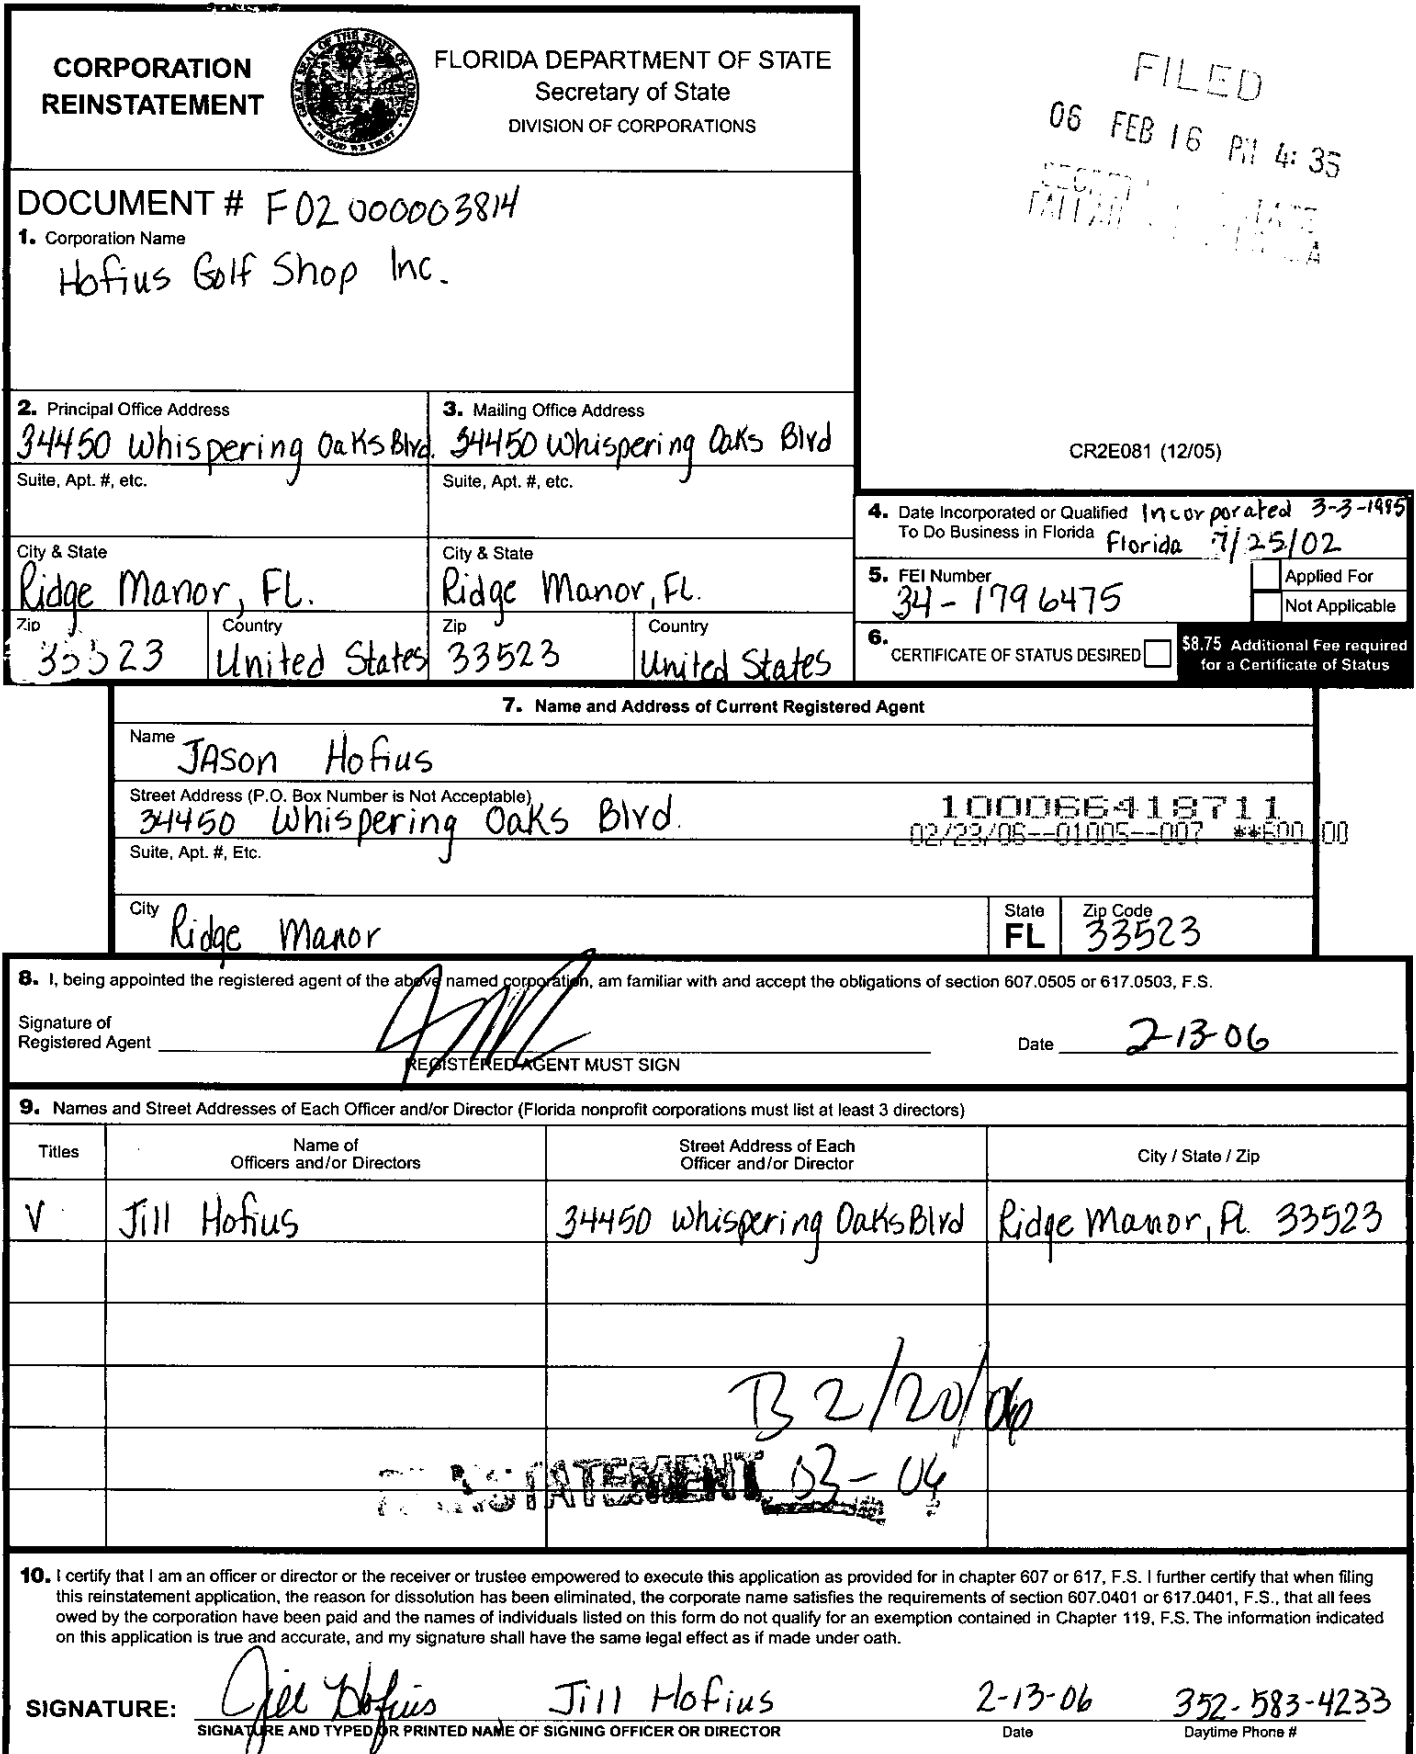 CORPORATION
REINSTATEMENT
GREAT SEAL OF THE STATE OF FLORIDA
IN GOD WE TRUST
FLORIDA DEPARTMENT OF STATE
Secretary of State
DIVISION OF CORPORATIONS
FILED
06 FEB 16 PM 4:35
DOCUMENT # F02000003814
1. Corporation Name
Hofius Golf Shop Inc.
2. Principal Office Address
34450 Whispering Oaks Blvd.
Suite, Apt. #, etc.
City & State
Ridge Manor, FL.
Zip
33523
Country
United States
3. Mailing Office Address
34450 Whispering Oaks Blvd
Suite, Apt. #, etc.
City & State
Ridge Manor, FL.
Zip
33523
Country
United States
CR2E081 (12/05)
4. Date Incorporated or Qualified Incorporated 3-3-1995
To Do Business in Florida Florida 7/25/02
5. FEI Number
34-1796475
Applied For
Not Applicable
6. CERTIFICATE OF STATUS DESIRED
$8.75 Additional Fee required
for a Certificate of Status
7. Name and Address of Current Registered Agent
Name
JASon Hofius
Street Address (P.O. Box Number is Not Acceptable)
34450 Whispering Oaks Blvd.
100066418711
02/23/06--01005--007 **600.00
Suite, Apt. #, Etc.
City
Ridge Manor
State
FL
Zip Code
33523
8. I, being appointed the registered agent of the above named corporation, am familiar with and accept the obligations of section 607.0505 or 617.0503, F.S.
Signature of
Registered Agent
REGISTERED AGENT MUST SIGN
Date 2-13-06
9. Names and Street Addresses of Each Officer and/or Director (Florida nonprofit corporations must list at least 3 directors)
Titles
Name of
Officers and/or Directors
Street Address of Each
Officer and/or Director
City / State / Zip
V Jill Hofius 34450 Whispering Oaks Blvd Ridge Manor, FL 33523
B 2/20/06
REINSTATEMENT 03-06
10. I certify that I am an officer or director or the receiver or trustee empowered to execute this application as provided for in chapter 607 or 617, F.S. I further certify that when filing
this reinstatement application, the reason for dissolution has been eliminated, the corporate name satisfies the requirements of section 607.0401 or 617.0401, F.S., that all fees
owed by the corporation have been paid and the names of individuals listed on this form do not qualify for an exemption contained in Chapter 119, F.S. The information indicated
on this application is true and accurate, and my signature shall have the same legal effect as if made under oath.
SIGNATURE: Jill Hofius Jill Hofius 2-13-06 352-583-4233
SIGNATURE AND TYPED OR PRINTED NAME OF SIGNING OFFICER OR DIRECTOR
Date
Daytime Phone #